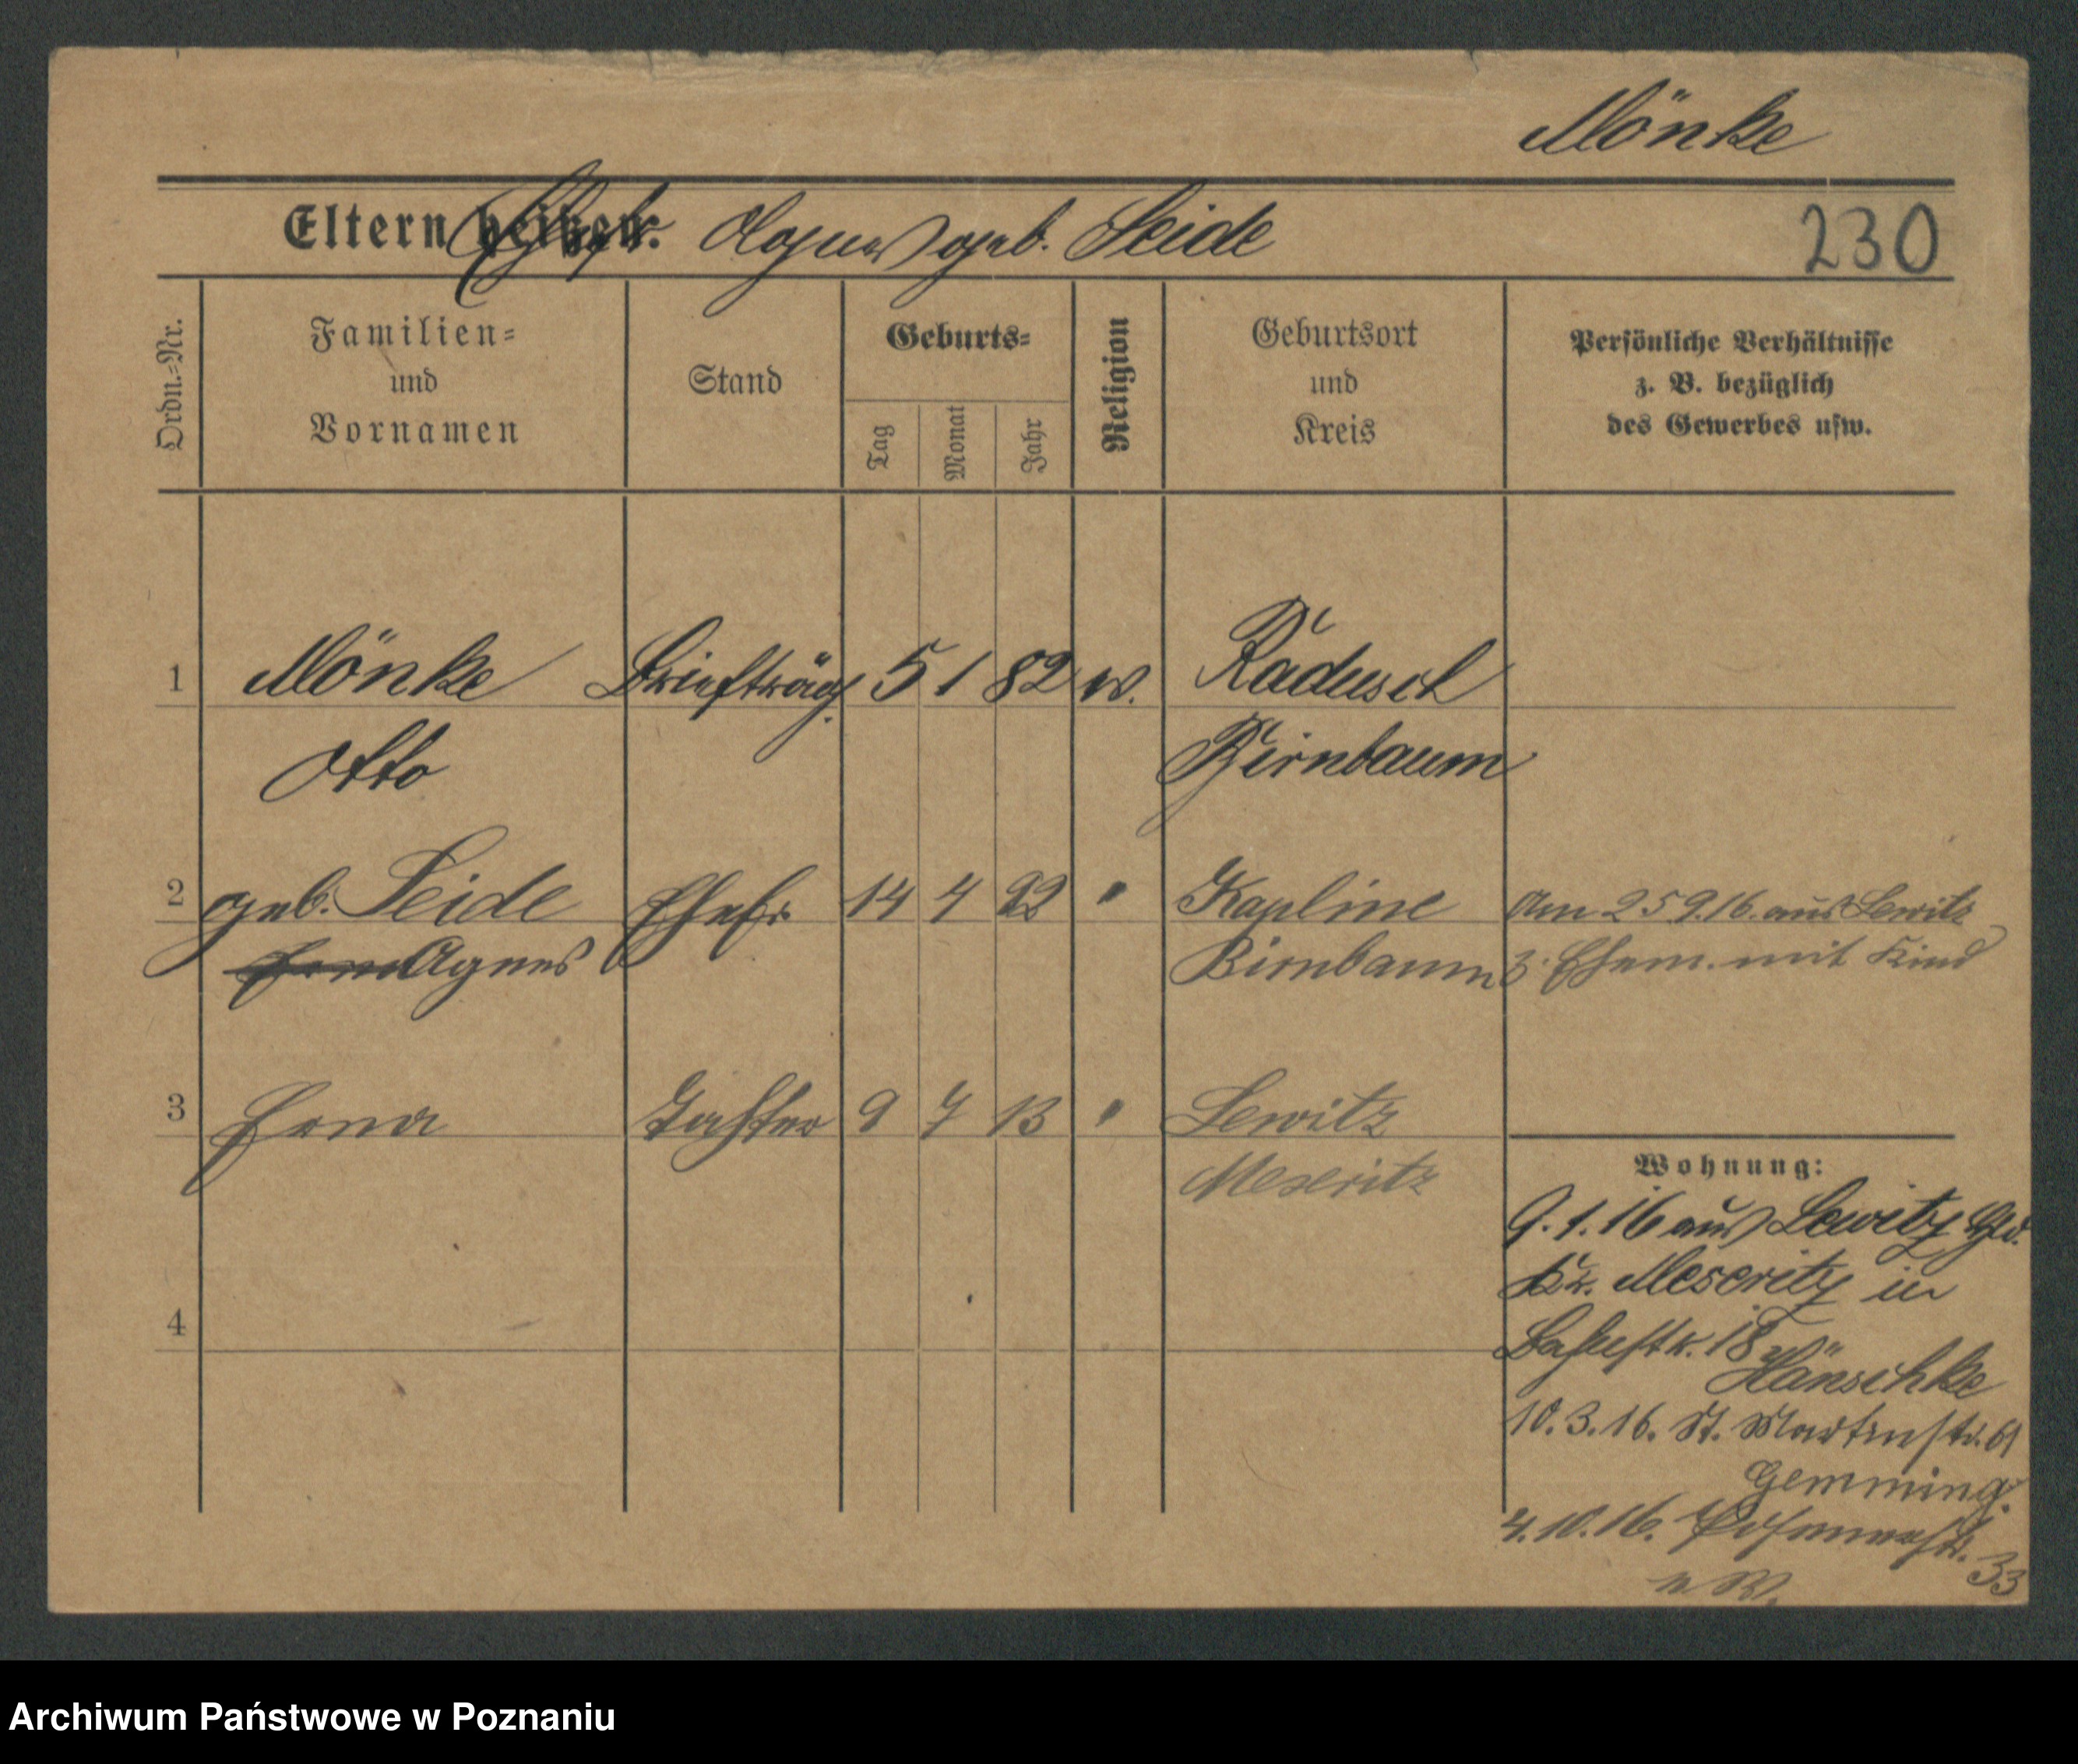 Mönke
Eltern heißen: Ehefr. Agnes geb. Seide
230
Ordn.=Nr.
Familien=
und
Vornamen
Stand
Geburts=
Tag
Monat
Jahr
Religion
Geburtsort
und
Kreis
Persönliche Verhältnisse
z. B. bezüglich
des Gewerbes usw.
1 Mönke Briefträg. 5 1 82 ev. Radusch
Otto Birnbaum
2 geb. Seide Ehefr. 14 4 92 " Kapline Am 25 9.16. aus Lewitz
Agnes Birnbaum z. Ehem. mit Kind
3 Erna Tochter 9 7 13 " Lewitz
Meseritz
Wohnung:
9.1.16 aus Lewitz
Kr. Meseritz in
Bahnstr. 18
Hänschke
10.3.16. St. Martinstr. 61
Gemming.
4
4.10.16. 33
Archiwum Państwowe w Poznaniu